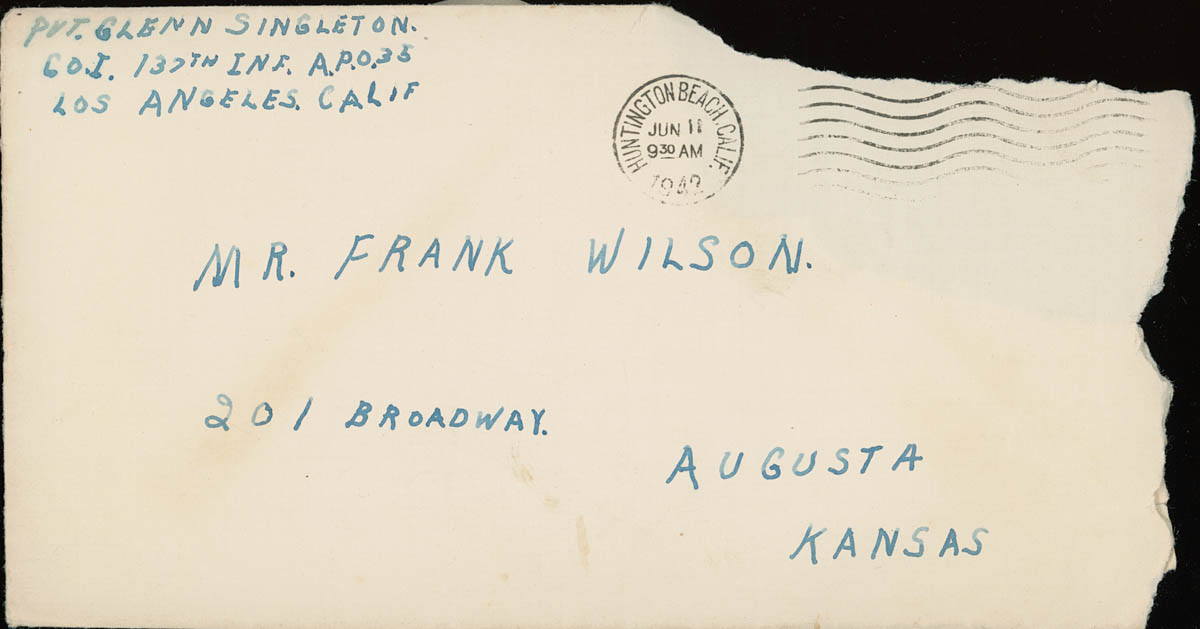 PVT. GLENN SINGLETON.
CO.I. 137TH INF. A.P.O.35
LOS ANGELES. CALIF
HUNTINGTON BEACH, CALIF.
JUN 11
9 30 AM
1942
MR. FRANK WILSON.
201 BROADWAY.
AUGUSTA
KANSAS